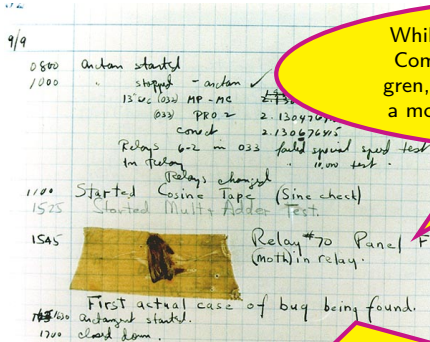 9/9
0800 antan started
1000 " stopped - antan ✓
13" uc (032) MP - MC
(033) PRO 2 2.1304764
conect 2.130676415
Relays 6-2 in 033 failed special speed test
In Relay " 10,000 test .
Relays changed
1100 Started Cosine Tape (Sine check)
1525 Started Mult + Adder Test.
1545 Relay #70 Panel F
(moth) in relay.
First actual case of bug being found.
1630 antangent started.
1700 closed down.
Whil
Com
gren,
a mo